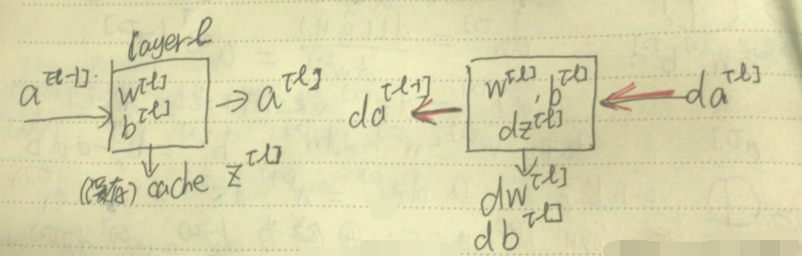 layer l
a^[l-1]
w^[l]
b^[l]
→ a^[l]
cache z^[l]
da^[l-1]
w^[l], b^[l]
dz^[l]
da^[l]
dw^[l]
db^[l]